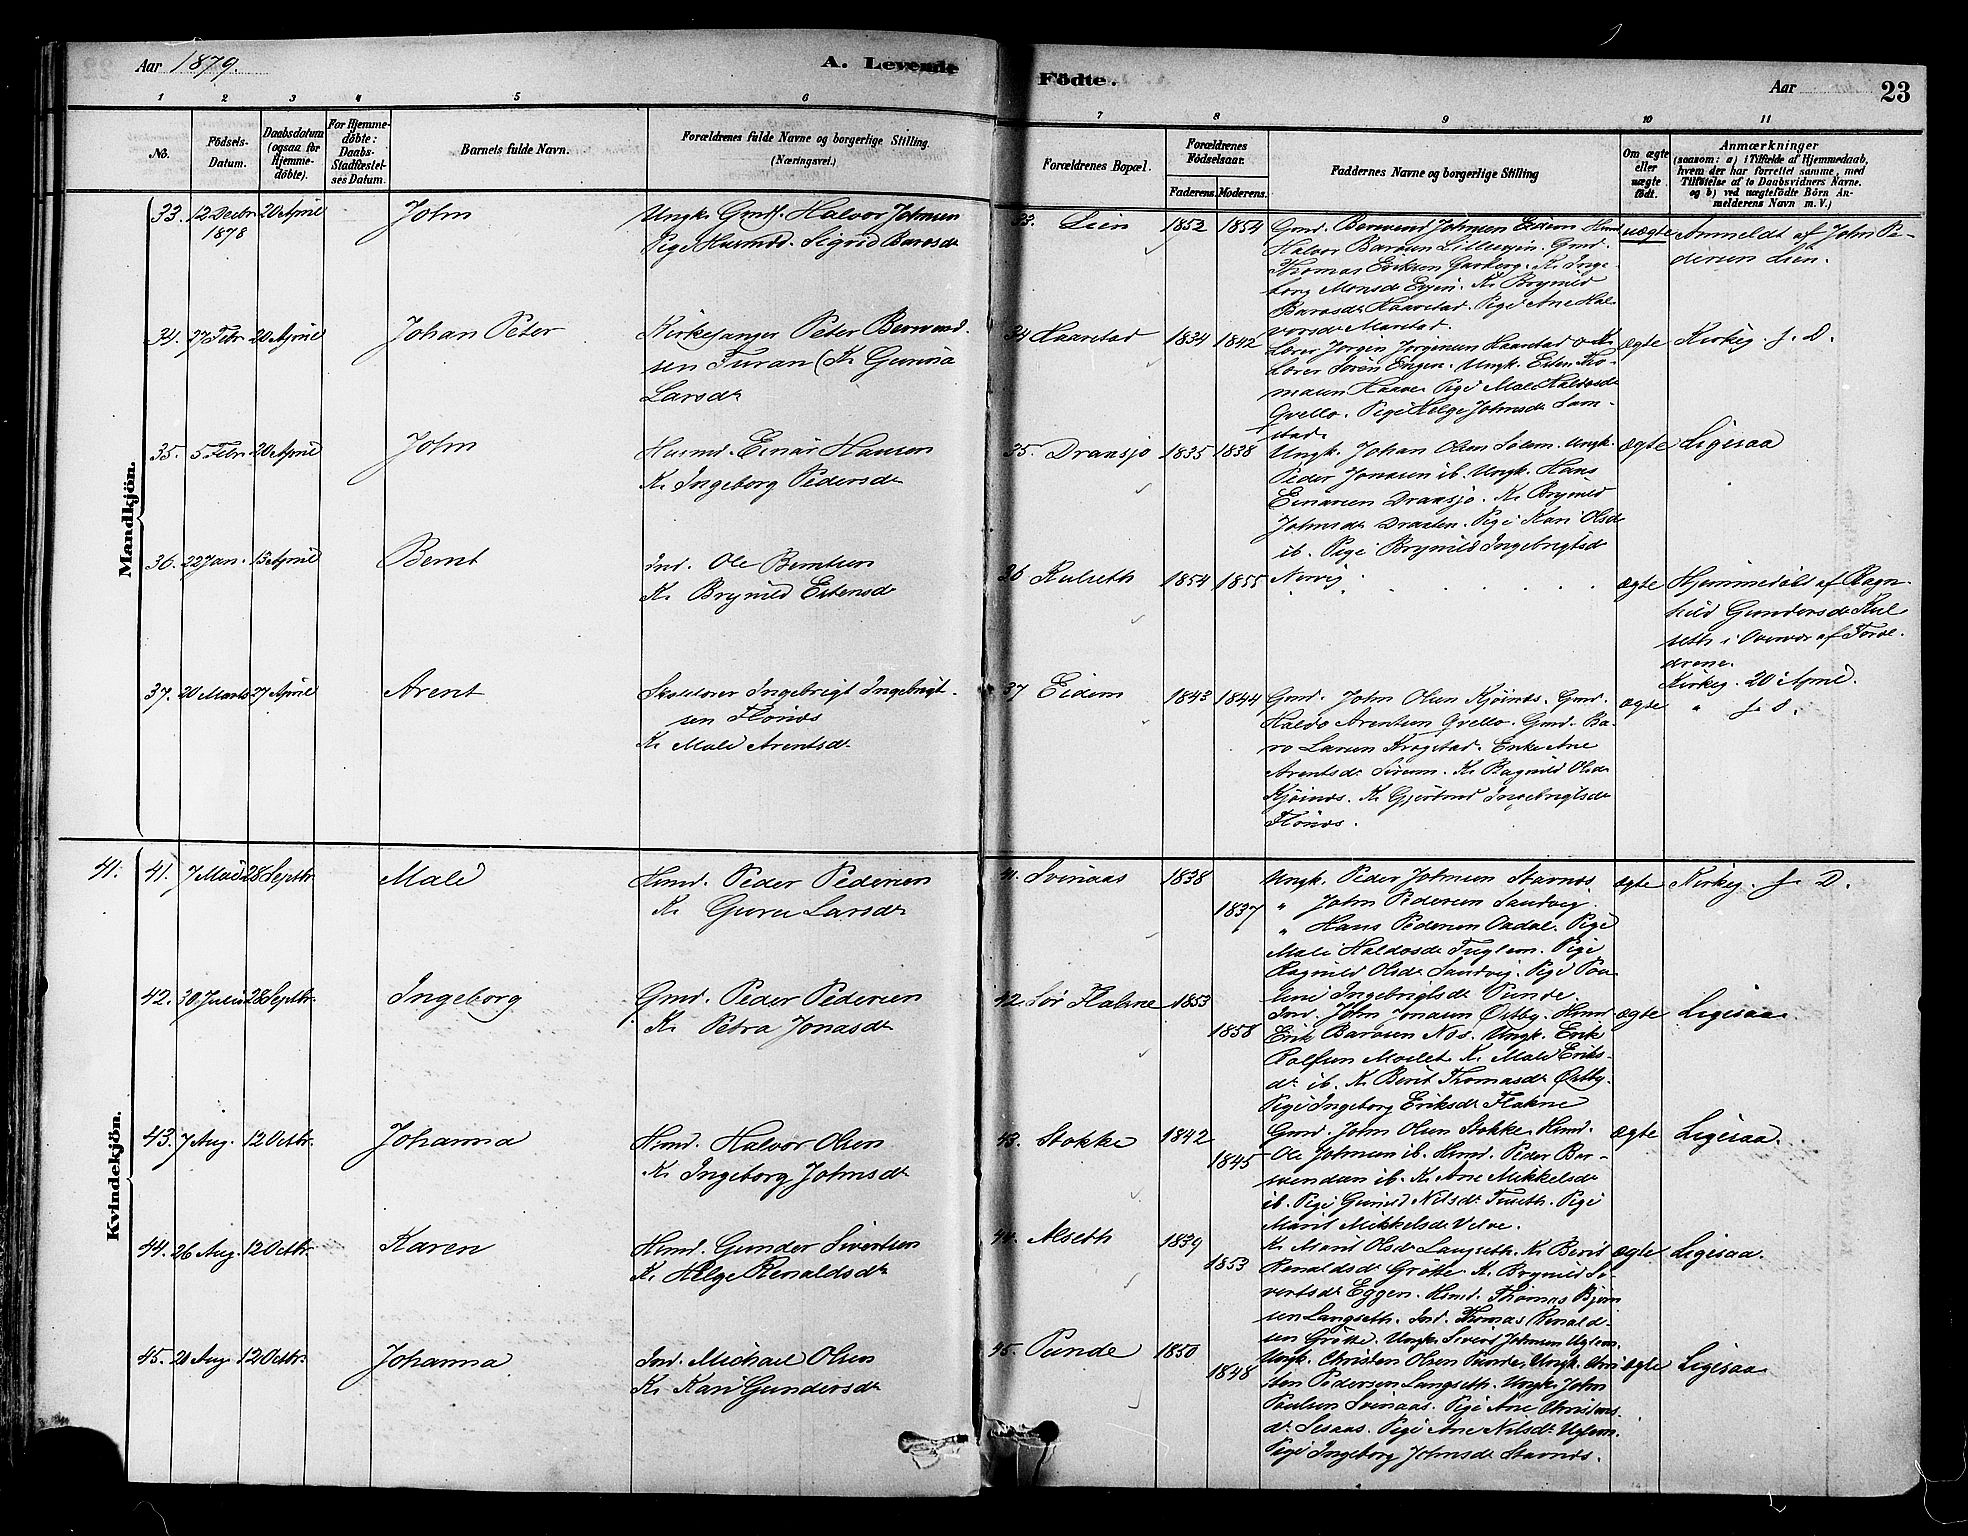 Aar 1879.
A. Levende
Födte.
Aar
23
1 2 3 4 5 6
7 8 9 10 11
No.
Födsels-
Datum.
Daabsdatum
(ogsaa for
Hjemme-
döbte).
For Hjemme-
döbte:
Daabs-
Stadfæstel-
ses Datum.
Barnets fulde Navn.
Forældrenes fulde Navne og borgerlige Stilling.
(Næringsvei.)
Forældrenes Bopæl.
Forældrenes
Födselsaar.
Faderens. Moderens.
Faddernes Navne og borgerlige Stilling
Om ægte
eller
uægte
födt.
Anmærkninger
(saasom: a) i Tilfælde af Hjemmedaab,
hvem der har forrettet samme, med
Tilföielse af to Daabsvidners Navne.
og b) ved uægtefödte Börn An-
melderens Navn m. V.)
Mandkjön.
33. 12 Decbr 20 April John Ungk. Gmdf. Halvor Johnsen
1878 Pige Husmd. Sigrid Barosdr
33. Lien 1852 1854 Gmd. Bernt Johnsen Eidem Hmd
Halvor Barosen Lillevjen. Gmd.
Thomas Eriksen Garberg. K. Inge-
borg Monsdr Evjen. K. Brynild
Barosdr Haarstad. Pige Ane Hal-
vorsdr Marstad.
uægte Anmeldt af John Pe-
dersen Lien.
34. 27 Febr 20 April Johan Peter Kirkesanger Peter Bernnd-
sen Furan (K. Gunna
Larsdr
34 Haarstad 1834 1842 Lærer Jørgen Jørgensen Haarstad o K.
Lærer Søren Engen. Ungk. Esten Tho-
masen Haave. Pige Male Haldosdr
Qvello. Pige Helge Johnsdr Sam-
stad.
ægte Kirkeg. f. D.
35. 5 Febr 20 April John Husmd. Einar Hansen
K. Ingeborg Pedersdr
35. Dransjo 1835 1838 Ungk. Johan Olsen Solem. Ungk.
Peder Jonasen ib. Ungk. Hans
Einarsen Dransjo. K. Brynild
Johnsdr Draxten. Pige Kari Olsdr
ib. Pige Brynild Ingebrigtsdr
ægte Ligesaa
36. 22 Jan. 13 April Bernt Ind. Ole Berntsen
K. Brynild Estensdr
36 Kulseth 1854 1855 Nervig
ægte Hjemmedøbt af Ragn-
hild Gundersdr Kul-
seth i Overvær af Foræl-
drene.
Kirkeg. 20 April.
37. 20 Marts 27 April Arent Skolelærer Ingebrigt Ingebrigt-
sen Flønæs
K. Mali Arentsdr
37 Eidem 1843 1844 Gmd. John Olsen Kjøinæs. Gmd.
Haldo Arentsen Qvello. Gmd. Ba-
ro Larsen Krogstad. Enke Ane
Arentsdr Sirum. K. Ragnild Olsdr
Kjøinæs. K. Gjertrud Ingebrigtsdr
Flønæs.
ægte " f. D.
Kvindekjön.
41. 41. 7 Mai 28 Septbr. Mali Hmd. Peder Pedersen
K. Guru Larsdr
41. Svinaas 1838 1837 Ungk. Peder Johnsen Stamæs
" John Pedersen Sandvig.
" Hans Pedersen Aadal. Pige
Mali Haldosdr Fuglem. Pige
Ragnild Olsdr Sandvig. Pige Pau-
line Ingebrigtsdr Punde
ægte Kirkeg. f. D.
42. 30 Juli 28 Septbr. Ingeborg Gmd. Peder Pedersen
K. Petra Jonasdr
42. Sør Flakne 1853 1858 Ind. John Jonasen Østby. Hmd
Erik Barosen Næs. Ungk. Erik
Rolfsen Moslet. K. Mali Eriks-
dr ib. K. Berit Thomasdr Østby.
Pige Ingeborg Eriksdr Flakne
ægte Ligesaa.
43. 7 Aug. 12 Octbr. Johanna Hmd. Halvor Olsen
K. Ingeborg Johnsdr
43. Stokke 1842 1845 Gmd. John Olsen Stokke. Hmd.
Ole Johnsen ib. Hmd. Peder Bar-
svendsen ib. K. Ane Mikkelsdr
ib. Pige Gunild Nilsdr Tuseth. Pige
Marit Mikkelsdr Velve.
ægte Ligesaa.
44. 26 Aug. 12 Octbr. Karen Hmd. Gunder Sivertsen
K. Helge Renaldsdr
44. Alseth 1839 1853 K. Marit Olsdr Langseth. K. Berit
Renaldsdr Grøtte. K. Brynild Si-
vertsdr Eggen. Hmd. Thomas Bjørn-
sen Langseth. Ind. Thomas Renald-
sen Grøtte. Ungk. Sivert Johnsen Uglem.
ægte Ligesaa.
45. 21 Aug. 12 Octbr. Johanna Ind. Michael Olsen
K. Kari Gundersdr
45. Punde 1850 1848 Ungk. Christen Olsen Punde. Ungk. Chri-
sten Pedersen Langseth. Ungk. John
Paulsen Svinaas. Pige Ane Christens-
dr Sesaas. Pige Ane Nilsdr Uglem.
Pige Ingeborg Johnsdr Stamæs.
ægte Ligesaa